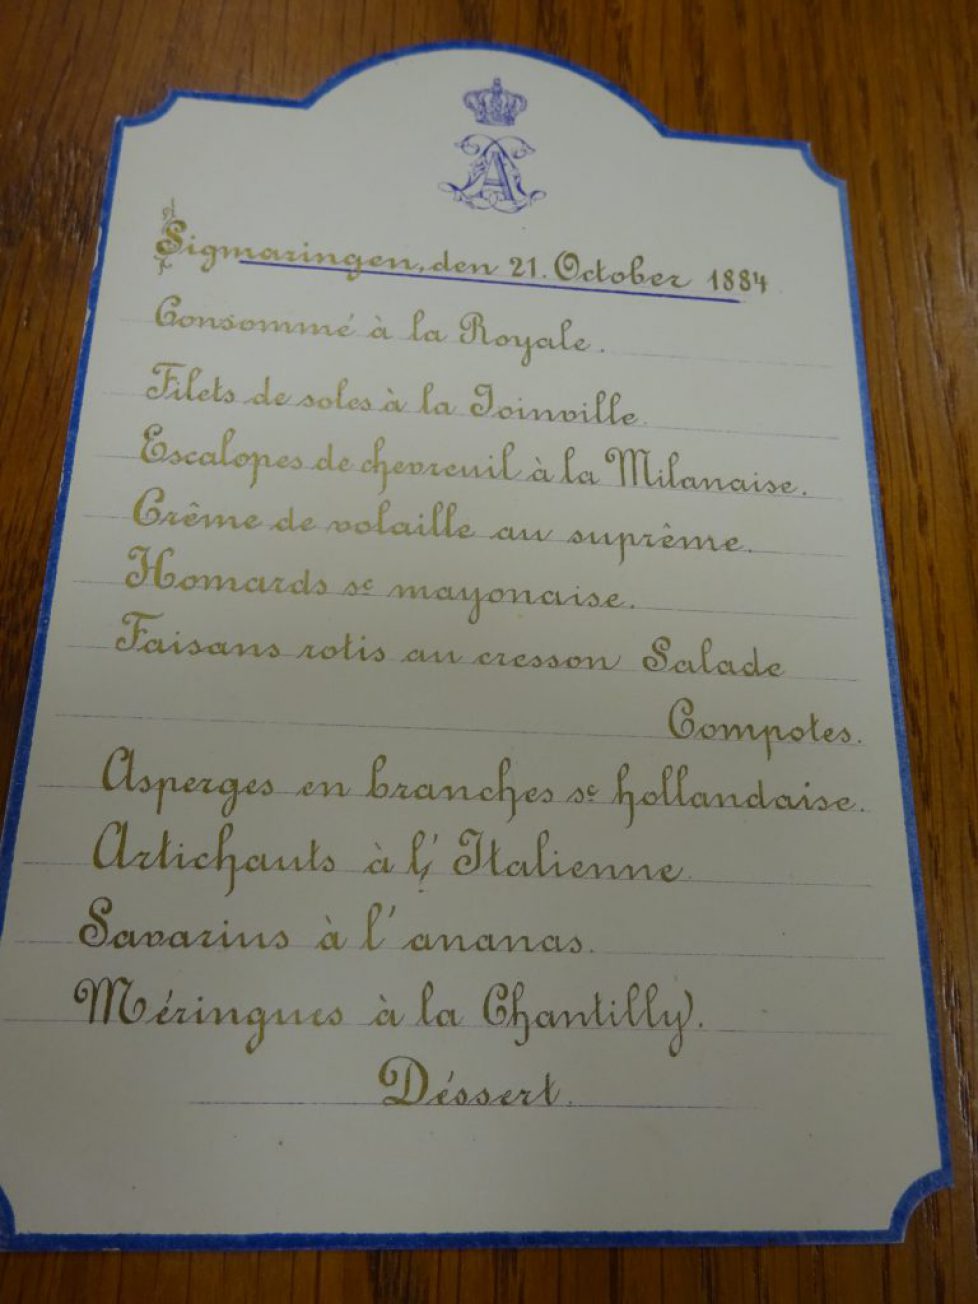 Sigmaringen, den 21. October 1884
Consommé à la Royale.
Filets de soles à la Joinville.
Escalopes de chevreuil à la Milanaise.
Crême de volaille au suprême.
Homards sc mayonaise.
Faisans rotis au cresson Salade
Compotes.
Asperges en branches sc hollandaise.
Artichauts à l' Italienne
Savarins à l'ananas.
Méringues à la Chantilly.
Déssert.